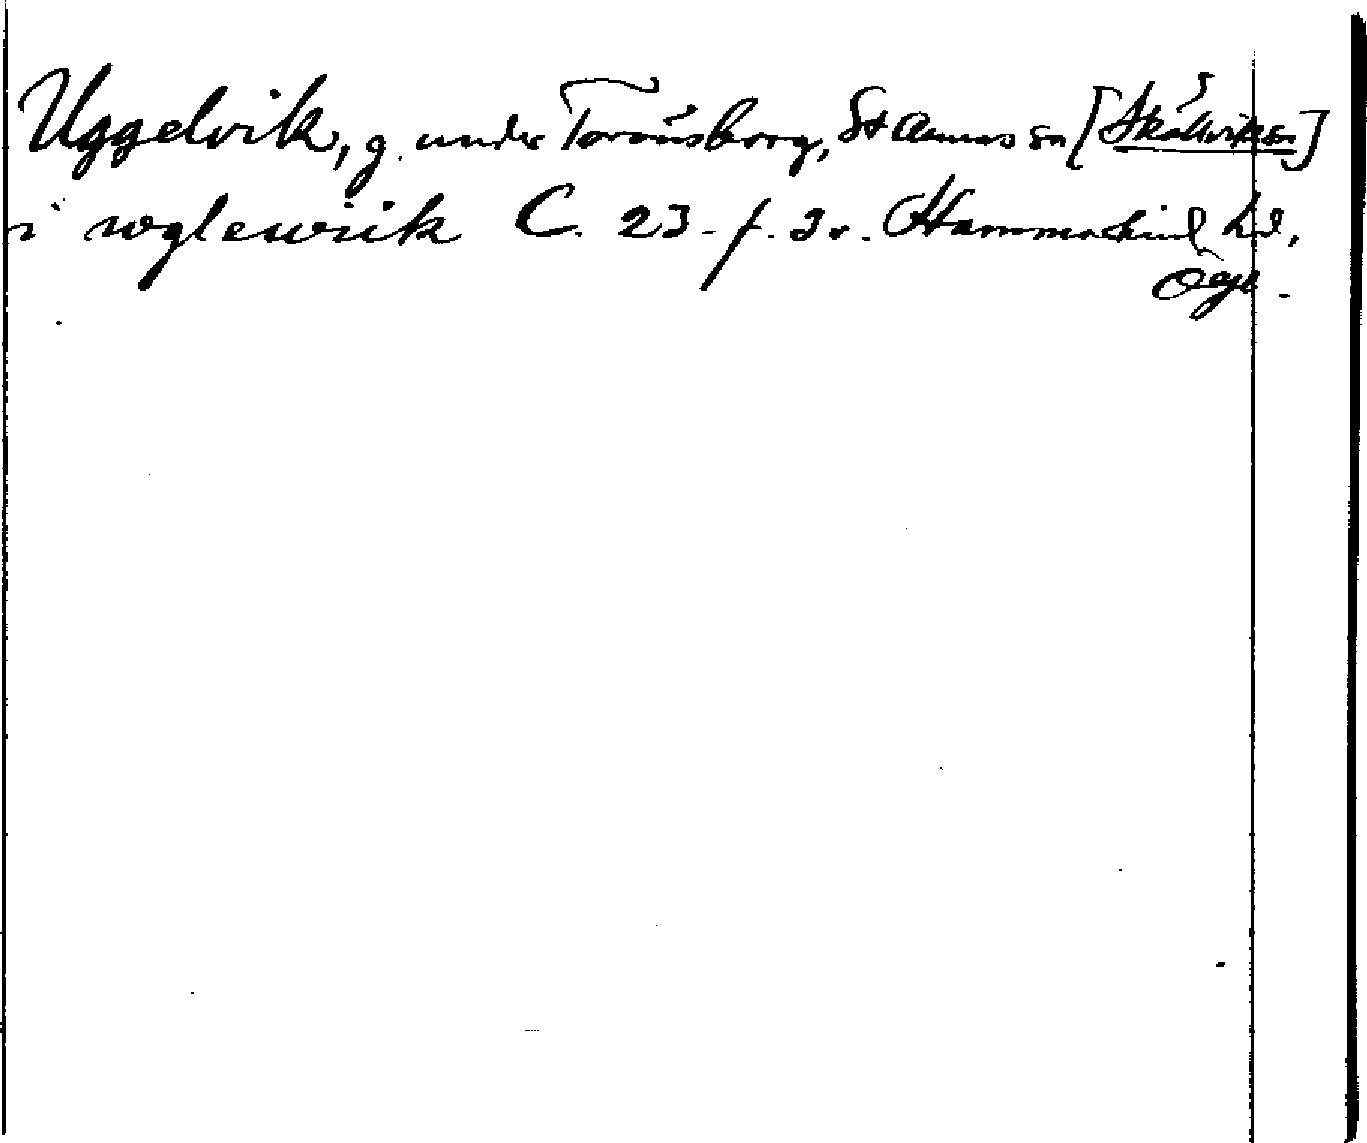 Uggelvik, g. under Torönsborg, St Annas sn [Skällviks sn]
i wglewiik C. 23. f. 3 v. Hammarkind hd,
Ögl.